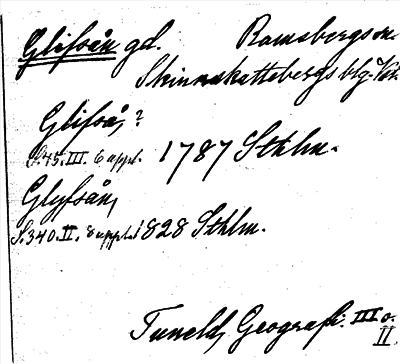 Glifsån gd. Ramsbergs sn.
Skinnskattebergs blg. Vst.
Glifså, ?
S. 45. III. 6 appl. 1787 Sthlm.
Glyfsån,
S. 340. II. 8 uppl. 1828 Sthlm.
Tuneld, Geografi. III o.
II.